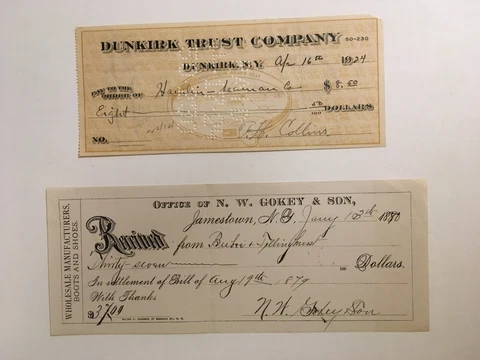 DUNKIRK TRUST COMPANY 50-230
DUNKIRK, N.Y. Apr 16th 1924
PAY TO THE
ORDER OF Hamlin - Newman Co $8.50
Eight 50/100 DOLLARS.
NO. Collins
OFFICE OF N. W. GOKEY & SON,
Jamestown, N.Y. Jany 13th 1880
Received from
Thirty-seven 00 Dollars.
In settlement of Bill of Aug 19th 1879
With Thanks
$37.00 N.W. Gokey & Son
WHOLESALE MANUFACTURERS,
BOOTS AND SHOES.